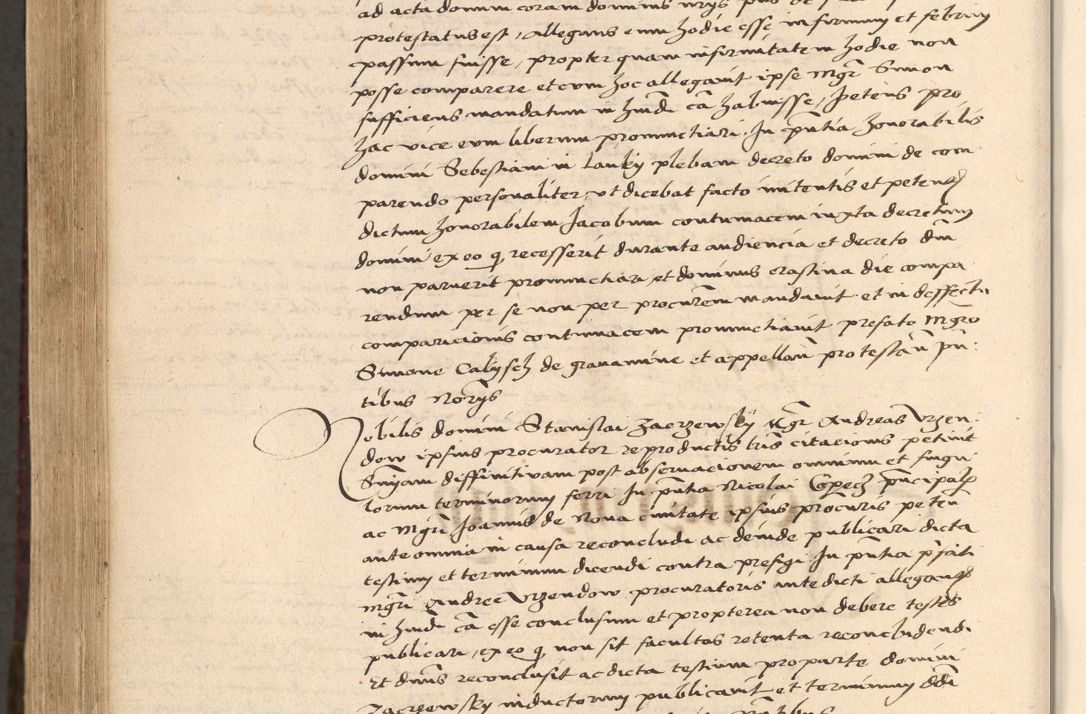 ad acta domini coram dominus
protestatus est, Allegans enim hodie esse infirmum et febrim
passum fuisse, propter quam infirmitatem hodie non
posse comparere et cum hoc allegavit ipse Mgr Simon
sufficiens mandatum in hmdi ca habuisse, petens pro
hac vice eum liberum pronunctiari. In pntia honorabilis
domini Sebestiani in Lanky plebani decreto domini de com
parendo personaliter, ut dicebat facto initentis et peten
dictum honorabilem Jacobum contumacem iuxta decretum
domini ex eo q recesserit durante audiencia et decreto dni
non paruerit pronunctiari, et dominus crastina die compa
rendum per se non per procurem mandavit et in deffectu
comparicionis contumacem pronunctiavit prefato Mgro
Simone Calysch de gravamine et appellan protestan pn:
tibus Norys
Nobilis domini Stanislai Zaczewsky Mgr Andreas Uzen:
dow ipsius procurator reproductis lris citacionis petivit
Sniam diffinitivam post observacionem omnium et singu
lorum terminorum ferri In pntia Nicolai Copecz principal
ac Mgri Joannis de Nova civitate ipsius procuris peten
ante omnia in causa reconcludi ac deinde publicari dicta
testium et terminum dicendi contra prefigi In pntia pfati
Mgri Andree Uzendow procuratoris antedicti allegan
in hmdi ca esse conclusum et propterea non debere testes
publicari, ex eo q non sit facultas retenta reconcludendi
Et dnus reconclusit ac dicta testium pro parte domini
Zaczewsky inductorum publicavit et terminum ddi